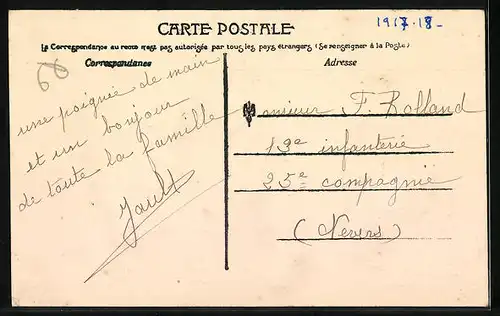 CARTE POSTALE
1917-18-
La Correspondance au recto n'est pas autorisée par tous les pays étrangers (Se renseigner à la Poste)
Correspondance
Adresse
66
une poignée de main
et un bonjour
de toute la famille
Jault
Monsieur F. Rolland
13e infanterie
25e compagnie
(Nevers)